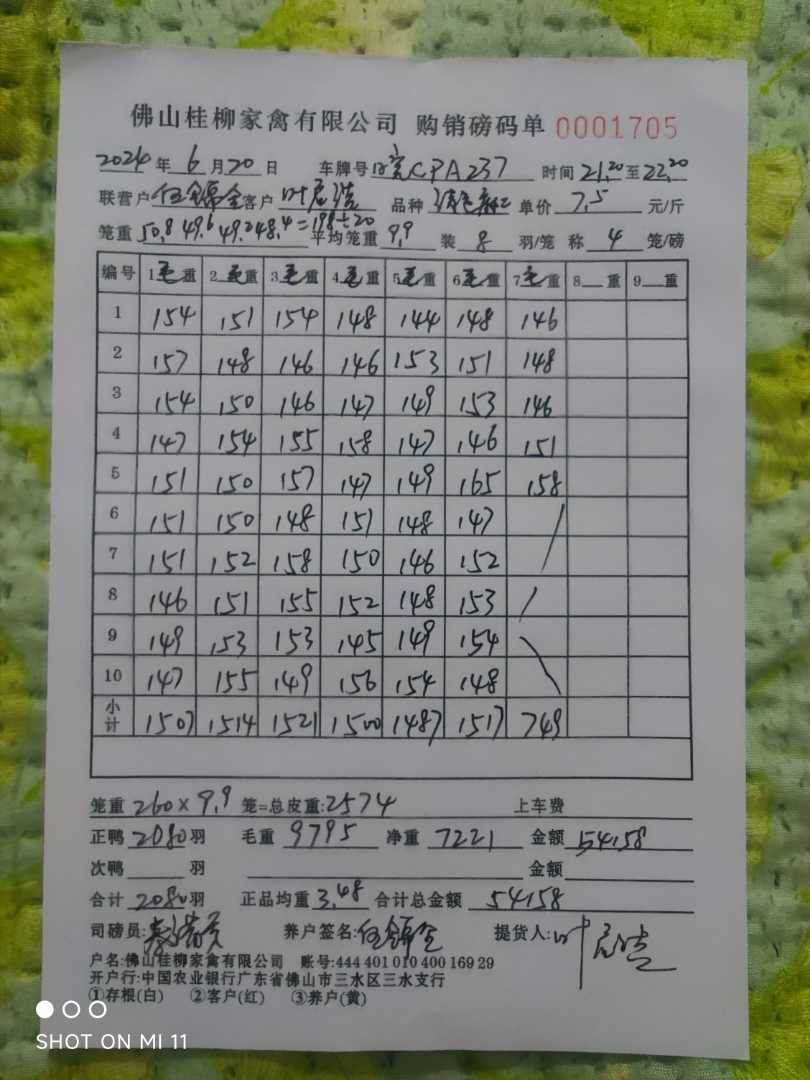 佛山桂柳家禽有限公司 购销磅码单 0001705
2024年6月20日 车牌号 CPA237 时间21,20至22,20
联营户 伍锦全 客户 叶 品种 单价 7,5 元/斤
笼重 50,8 49,6 49,2 48,4=198÷20 平均笼重 9,9 装 8 羽/笼 称 4 笼/磅
编号 1毛重 2毛重 3毛重 4毛重 5毛重 6毛重 7毛重 8重 9重
1 154 151 154 148 144 148 146
2 157 148 146 146 153 151 148
3 154 150 146 147 149 153 146
4 147 154 155 158 147 146 151
5 151 150 157 147 149 165 158
6 151 150 148 151 148 147
7 151 152 158 150 146 152
8 146 151 155 152 148 153
9 149 153 153 145 149 154
10 147 155 149 156 154 148
小计 1507 1514 1521 1500 1487 1517 749
笼重 260×9,9 笼=总皮重:2574 上车费
正鸭 2080 羽 毛重 9795 净重 7221 金额 54158
次鸭 羽 金额
合计 2080 羽 正品均重 3,48 合计总金额 54158
司磅员: 养户签名: 伍锦全 提货人: 叶
户名:佛山桂柳家禽有限公司 账号:444 401 010 400 169 29
开户行:中国农业银行广东省佛山市三水区三水支行
①存根(白) ②客户(红) ③养户(黄)
SHOT ON MI 11